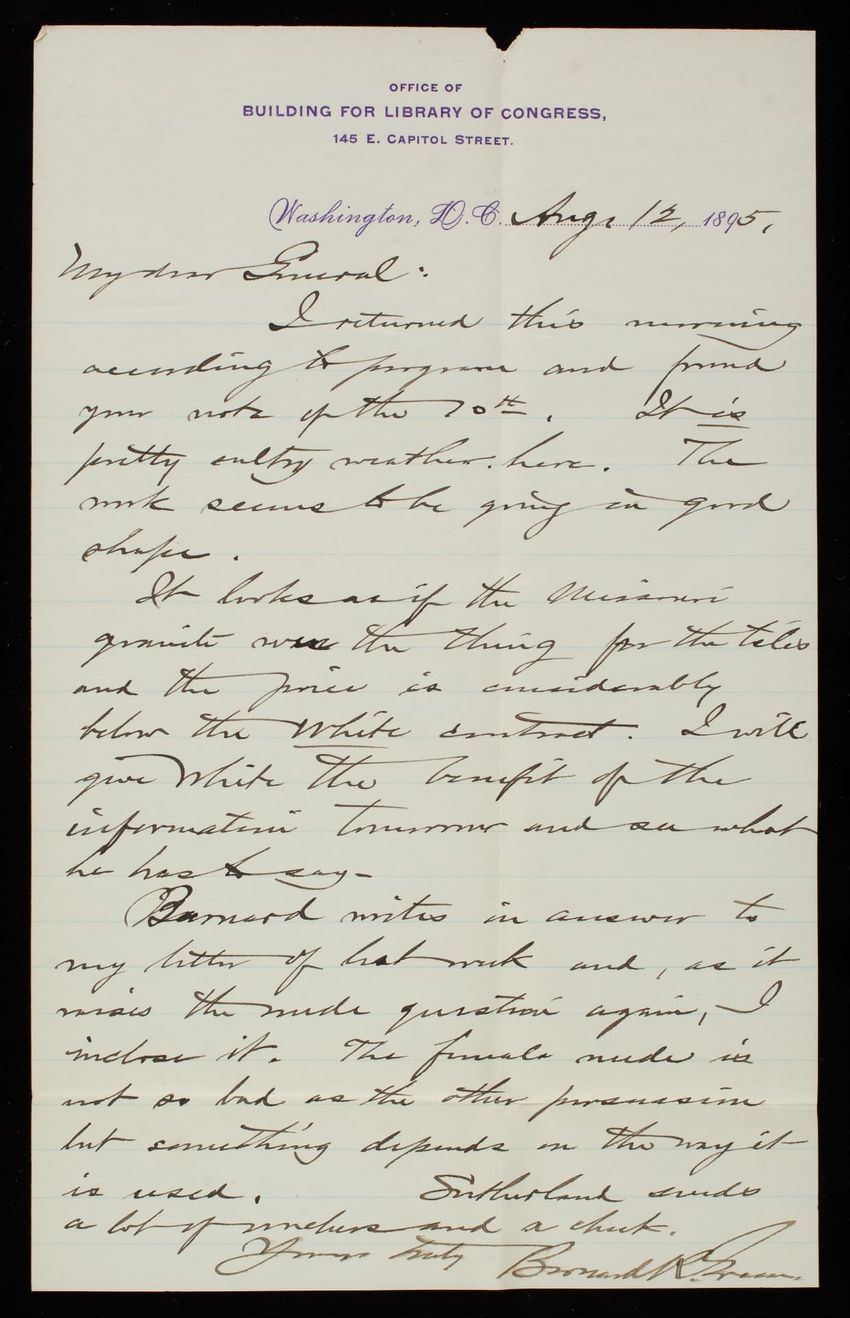 OFFICE OF
BUILDING FOR LIBRARY OF CONGRESS,
145 E. CAPITOL STREET.
Washington, D.C. Aug. 12, 1895,
My dear General:
I returned this morning
according to program and found
your note of the 10th. It is
pretty sultry weather here. The
work seems to be going in good
shape.
It looks as if the Missouri
granite was the thing for the tiles
and the price is considerably
below the White contract. I will
give White the benefit of the
information tomorrow and see what
he has to say-
Barnard writes in answer to
my letter of last week and, as it
raises the nude question again, I
inclose it. The female nude is
not so bad as the other persuasion
but something depends on the way it
is used. Sutherland sends
a lot of vouchers and a check.
Yours truly Bernard R. Green.